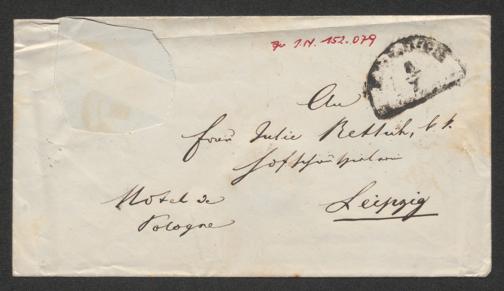 zu I.N. 152.079
An
Frau Julie Rettich, k. k.
Hofschauspielerin
Leipzig
Hotel de
Pologne